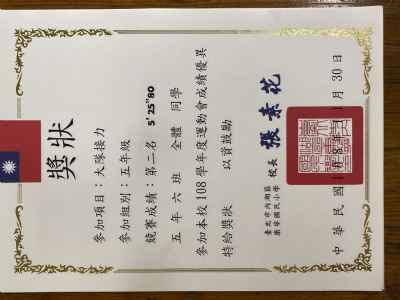 獎狀
參加項目：大隊接力
參加組別：五年級
競賽成績：第二名 5'25"80
五年六班 全體 同學
參加本校108學年度運動會成績優異
特給獎狀 以資鼓勵
臺北市內湖區
康寧國民小學
校長 張素花
中華民國 月30日